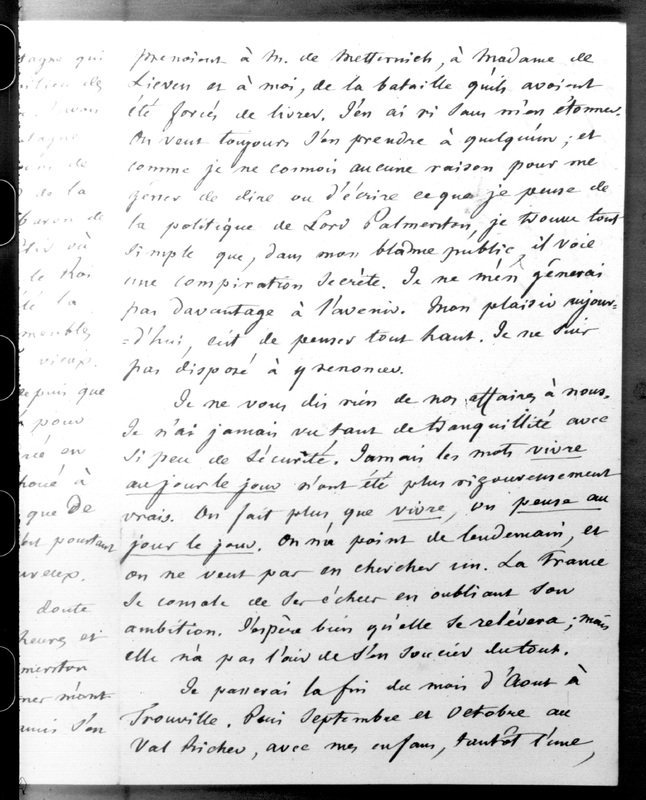 tagne qui
milieu de
vous
de
de la
baron de
où
le Roi
la
meubles
vieux.
depuis que
pour
en
à
que de
est pourtant
doute
heures et
merston
m'ont
s'en
prenoient à M. de Metternich, à Madame de
Lieven et à moi, de la bataille qu'ils avoient
été forcés de livrer. J'en ai ri sans m'en étonner.
On veut toujours s'en prendre à quelqu'un ; et
comme je ne connois aucune raison pour me
gêner de dire ou d'écrire ce que je pense de
la politique de Lord Palmerston, je trouve tout
simple que, dans mon blâme public, il voie
une conspiration secrète. Je ne m'en gênerai
pas davantage à l'avenir. Mon plaisir aujour=
=d'hui, c'est de penser tout haut. Je ne suis
pas disposé à y renoncer.
Je ne vous dis rien de nos affaires à nous.
Je n'ai jamais vu tant de tranquillité avec
si peu de sécurité. Jamais les mots vivre
au jour le jour n'ont été plus rigoureusement
vrais. On fait plus que vivre, on pense au
jour le jour. On n'a point de lendemain, et
on ne veut pas en chercher un. La France
se console de ses échecs en oubliant son
ambition. J'espère bien qu'elle se relèvera ; mais
elle n'a pas l'air de s'en soucier du tout.
Je passerai la fin du mois d'Aout à
Trouville. Puis Septembre et Octobre au
Val Richer, avec mes enfans, tantôt l'une,